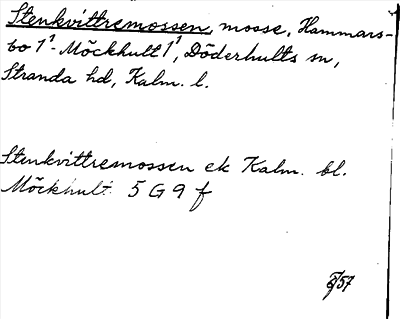 Stenkvittremossen, mosse, Hammars-
bo 1¹-Möckhult 1¹, Döderhults sn,
Stranda hd, Kalm. l.
Stenkvittremossen ek Kalm. bl.
Möckhult 5 G 9 f
57